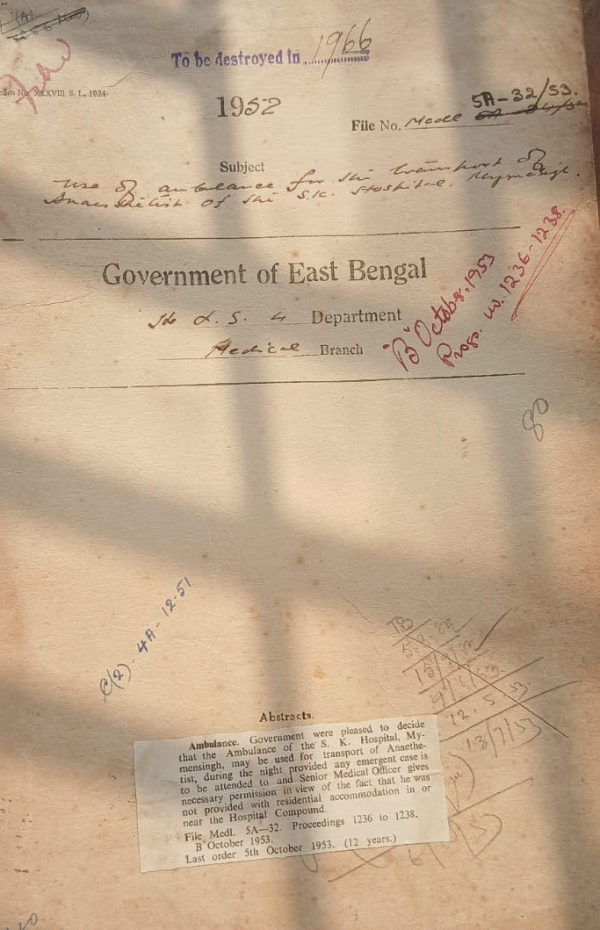 (A)
To be destroyed in 1966
XXXVIII. S. I., 1924.
1952
5A-32/53.
File No. Medl
Subject
use of ambulance for the transport of
Anaesthetist of the S.K. Hospital, Mymensingh.
Government of East Bengal
H & L. S. G Department
Medical Branch
"B" October, 1953
Progs. no. 1236-1238.
80
C(2). 4A-12-51
12. 5. 53
13/7/53
Abstracts.
Ambulance. Government were pleased to decide
that the Ambulance of the S. K. Hospital, My-
mensingh, may be used for transport of Anaethe-
tist, during the night provided any emergent case is
to be attended to and Senior Medical Officer gives
necessary permission in view of the fact that he was
not provided with residential accommodation in or
near the Hospital Compound.
File Medl. 5A—32. Proceedings 1236 to 1238.
B October 1953.
Last order 5th October 1953. (12 years.)